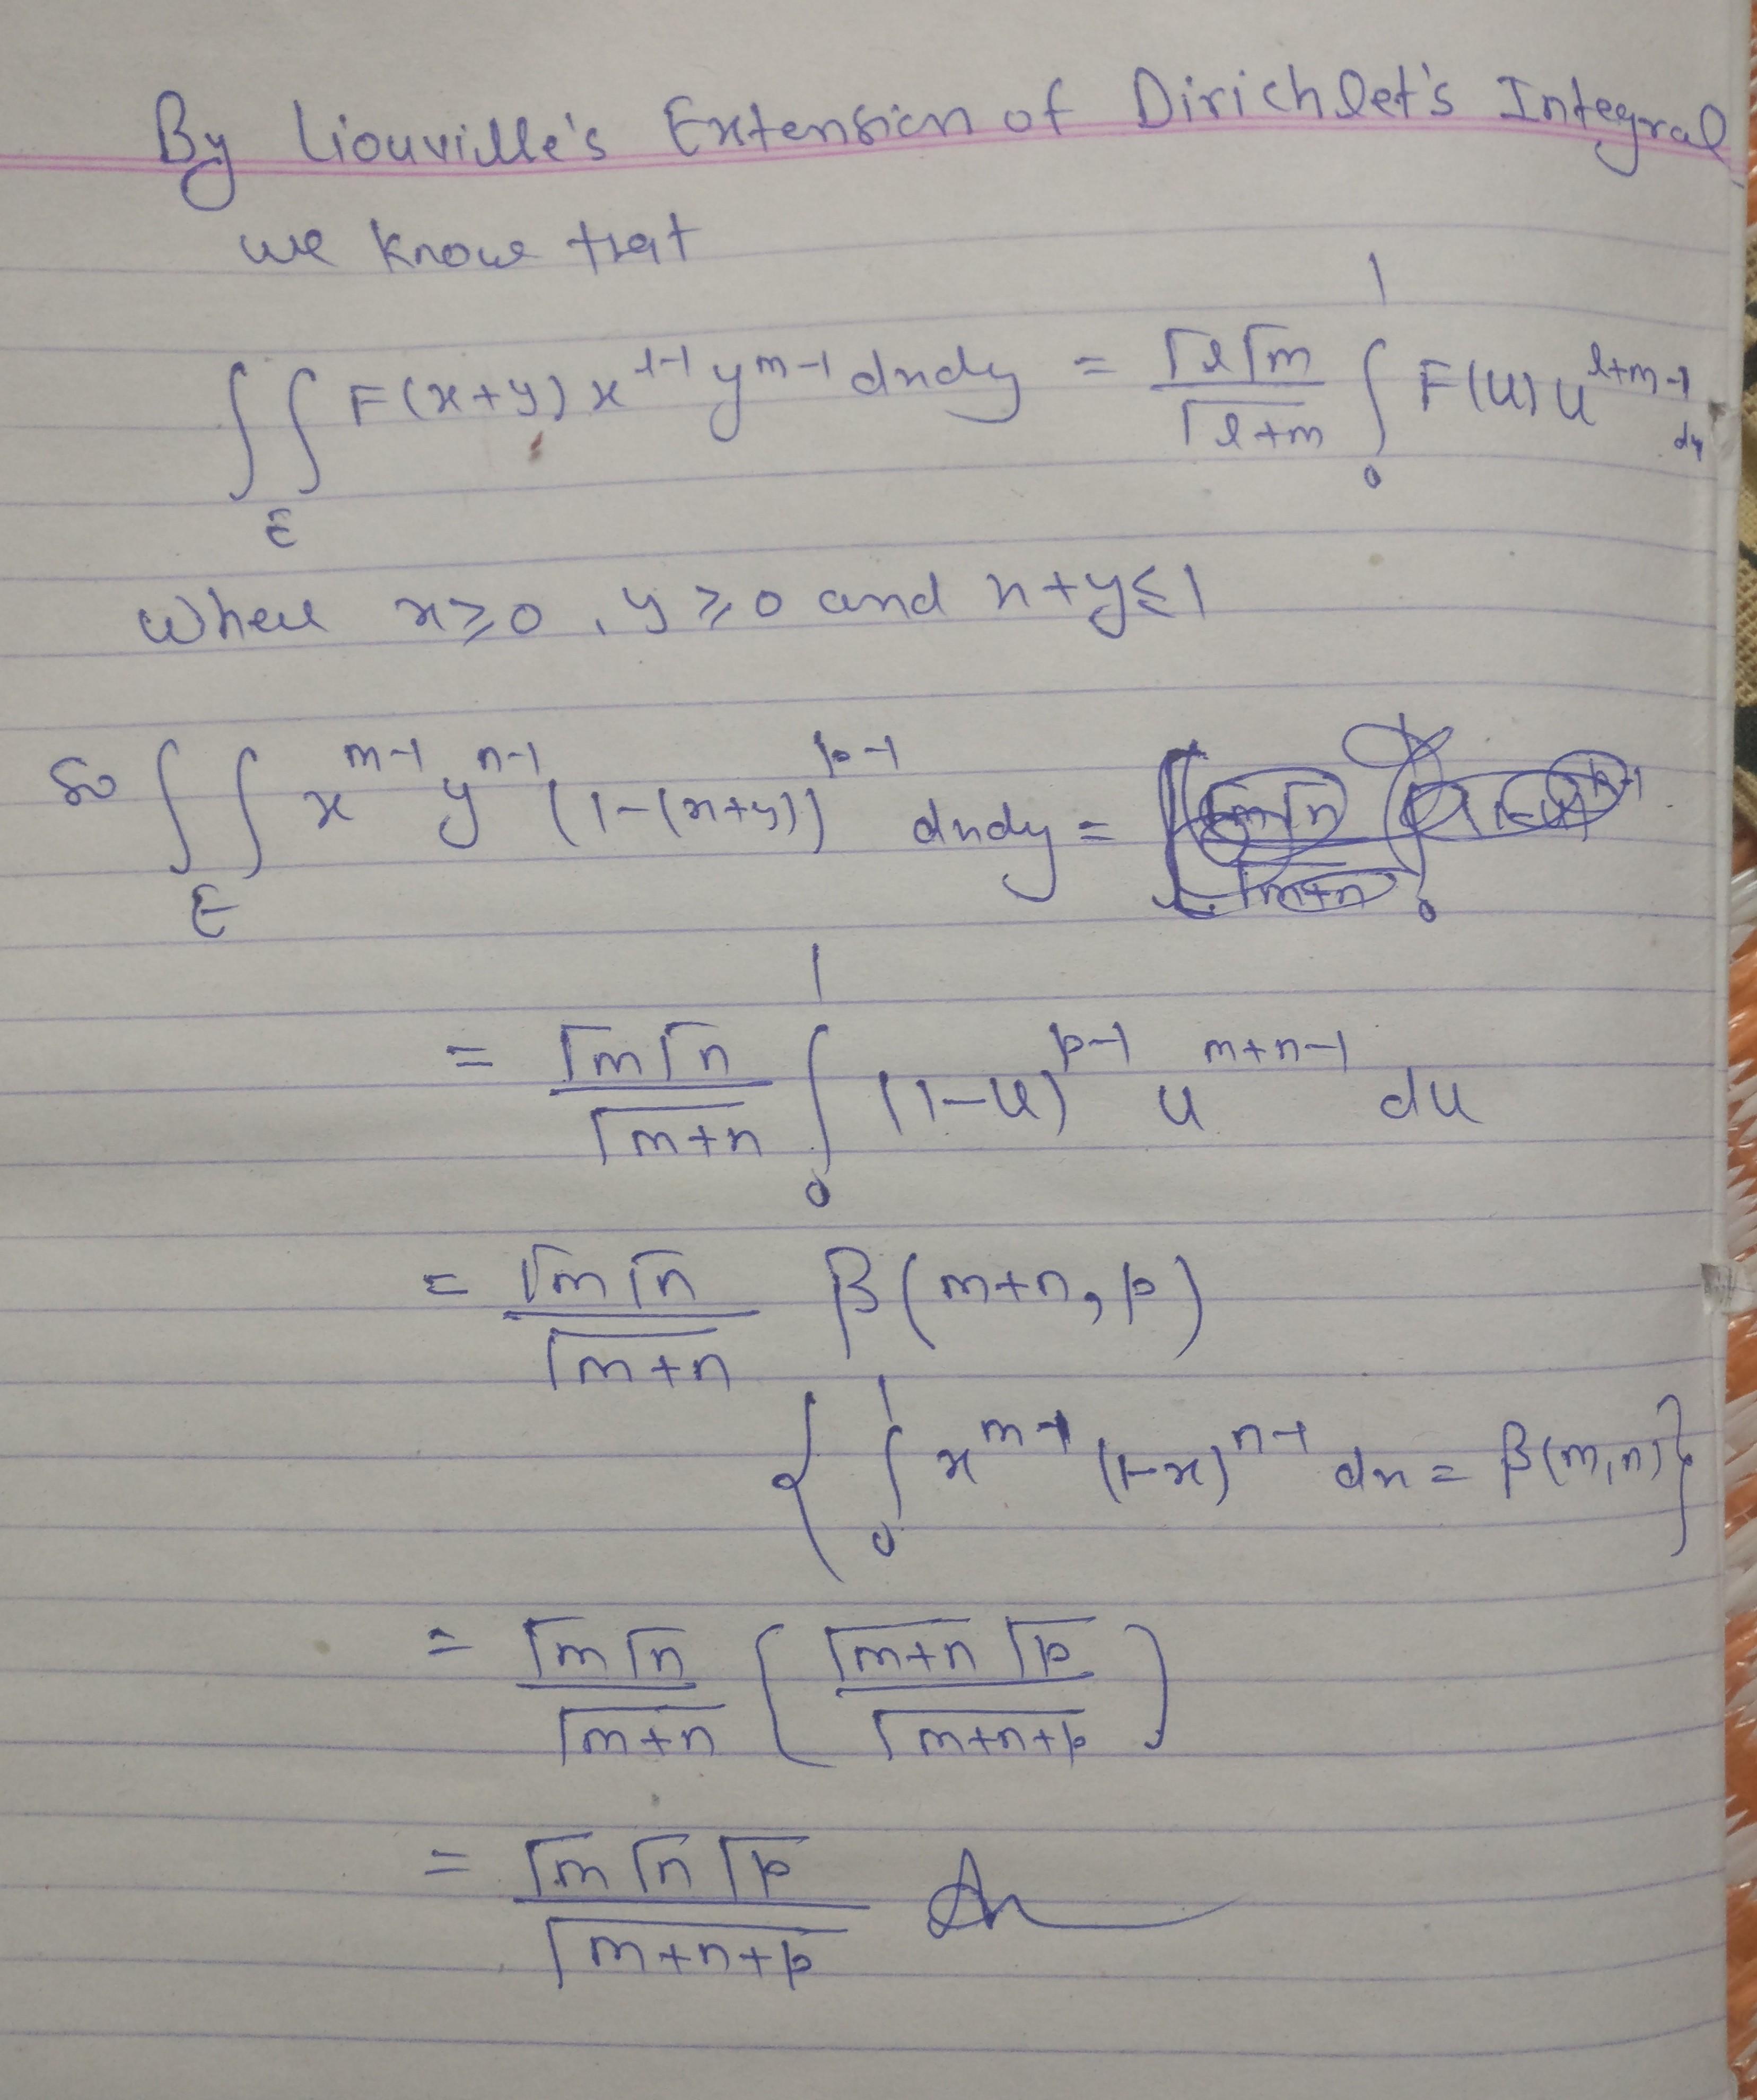 By Liouville's Extension of Dirichlet's Integral
we know that
∫∫_E F(x+y) x^{l-1} y^{m-1} dxdy = Γl Γm / Γl+m ∫_0^1 F(u) u^{l+m-1} du
Where x ≥ 0, y ≥ 0 and x+y ≤ 1
So ∫∫_E x^{m-1} y^{n-1} (1-(x+y))^{p-1} dxdy =
= Γm Γn / Γm+n ∫_0^1 (1-u)^{p-1} u^{m+n-1} du
= Γm Γn / Γm+n β(m+n, p)
{ ∫_0^1 x^{m-1} (1-x)^{n-1} dx = β(m,n) }
= Γm Γn / Γm+n ( Γm+n Γp / Γm+n+p )
= Γm Γn Γp / Γm+n+p